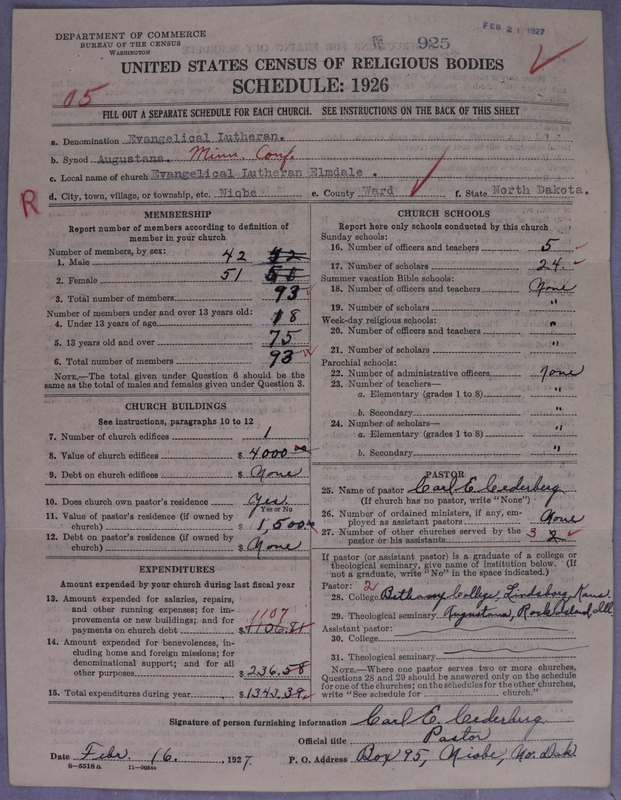 DEPARTMENT OF COMMERCE
BUREAU OF THE CENSUS
WASHINGTON
925
FEB 21 1927
UNITED STATES CENSUS OF RELIGIOUS BODIES
SCHEDULE: 1926
05
FILL OUT A SEPARATE SCHEDULE FOR EACH CHURCH. SEE INSTRUCTIONS ON THE BACK OF THIS SHEET
a. Denomination Evangelical Lutheran.
b. Synod Augustana. Minn. Conf.
c. Local name of church Evangelical Lutheran Elmdale .
d. City, town, village, or township, etc. Niobe e. County Ward f. State North Dakota.
R
MEMBERSHIP
Report number of members according to definition of
member in your church
Number of members, by sex:
1. Male 42 52
2. Female 51
3. Total number of members 93
Number of members under and over 13 years old:
4. Under 13 years of age 18
5. 13 years old and over 75
6. Total number of members 93
NOTE.—The total given under Question 6 should be the
same as the total of males and females given under Question 3.
CHURCH BUILDINGS
See instructions, paragraphs 10 to 12
7. Number of church edifices 1
8. Value of church edifices $ 4000.00
9. Debt on church edifices $ None
10. Does church own pastor's residence Yes.
Yes or No
11. Value of pastor's residence (if owned by
church) $ 1,500.00
12. Debt on pastor's residence (if owned by
church) $ None
EXPENDITURES
Amount expended by your church during last fiscal year
13. Amount expended for salaries, repairs,
and other running expenses; for im-
provements or new buildings; and for 1107
payments on church debt $ 1106.81
14. Amount expended for benevolences, in-
cluding home and foreign missions; for
denominational support; and for all
other purposes $ 236.58
15. Total expenditures during year $ 1343.39
CHURCH SCHOOLS
Report here only schools conducted by this church
Sunday schools:
16. Number of officers and teachers 5
17. Number of scholars 24
Summer vacation Bible schools:
18. Number of officers and teachers None
19. Number of scholars "
Week-day religious schools:
20. Number of officers and teachers "
21. Number of scholars "
Parochial schools:
22. Number of administrative officers None
23. Number of teachers—
a. Elementary (grades 1 to 8) "
b. Secondary "
24. Number of scholars—
a. Elementary (grades 1 to 8) "
b. Secondary "
PASTOR
25. Name of pastor Carl E. Cederberg
(If church has no pastor, write "None")
26. Number of ordained ministers, if any, em-
ployed as assistant pastors None
27. Number of other churches served by the
pastor or his assistants 3 2
If pastor (or assistant pastor) is a graduate of a college or
theological seminary, give name of institution below. (If
not a graduate, write "No" in the space indicated.)
Pastor: 2
28. College Bethany College, Lindsborg, Kans.
29. Theological seminary Augustana, Rock Island, Ill
Assistant pastor:
30. College
31. Theological seminary
NOTE.—Where one pastor serves two or more churches,
Questions 28 and 29 should be answered only on the schedule
for one of the churches; on the schedules for the other churches,
write "See schedule for church."
Signature of person furnishing information Carl E. Cederberg
Official title Pastor
Date Febr. 16, 1927. P. O. Address Box 95, Niobe, No. Dak
8—5518 a 11—9084